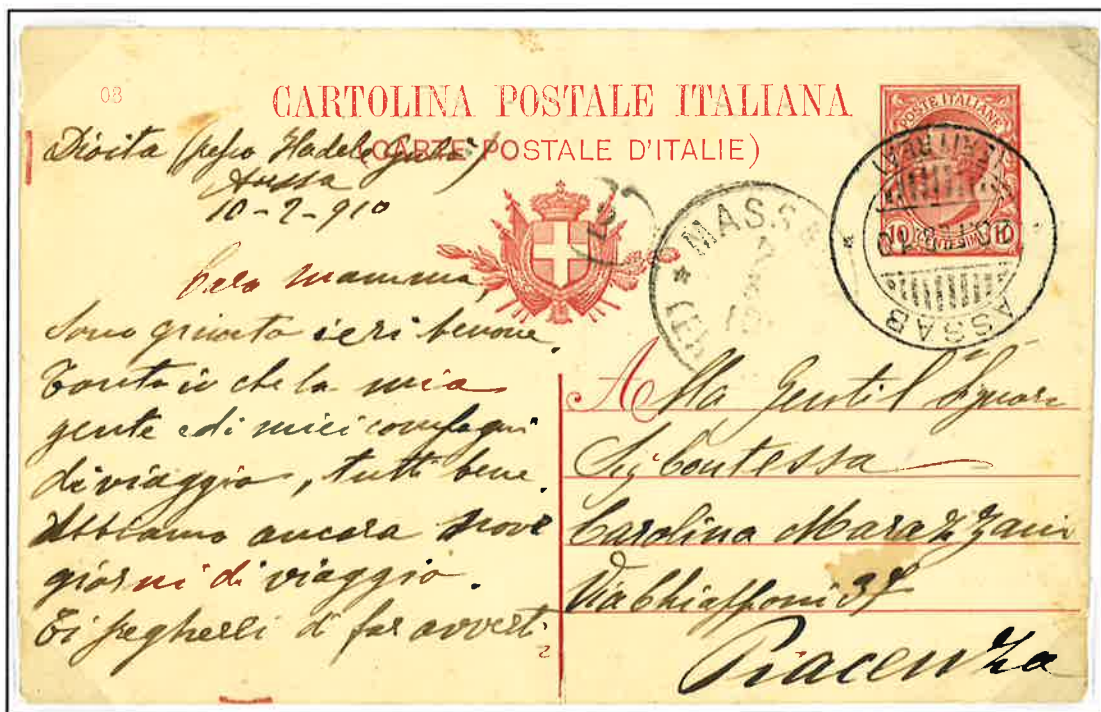 08
CARTOLINA POSTALE ITALIANA
(CARTE POSTALE D'ITALIE)
POSTE ITALIANE
10 CENTESIMI 10
ASSAB
(ERITREA)
MASS
Dioita (presso Hadele Gubo)
Aussa
10-2-910
Cara Mamma,
Sono giunto ieri benone.
Tanto io che la mia
gente ed i miei compagni
di viaggio, tutti bene.
Abbiamo ancora nove
giorni di viaggio.
Ti pregherei di far avverti
Alla Gentil Signora
Sig Contessa
Carolina Marazzani
Via Chiapponi 37
Piacenza